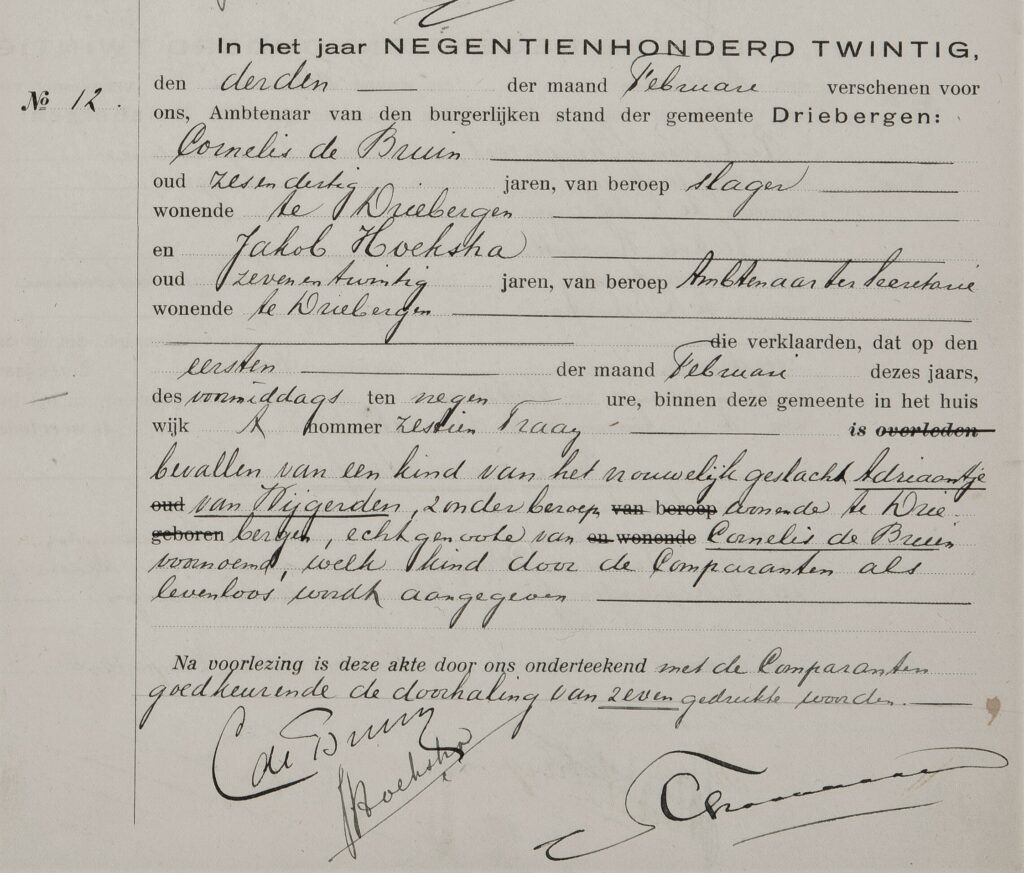 In het jaar NEGENTIENHONDERD TWINTIG,
den derden der maand Februari verschenen voor
No 12.
ons, Ambtenaar van den burgerlijken stand der gemeente Driebergen:
Cornelis de Bruin
oud zesendertig jaren, van beroep slager
wonende te Driebergen
en Jakob Hoekstra
oud zevenentwintig jaren, van beroep Ambtenaar ter Secretarie
wonende te Driebergen
die verklaarden, dat op den
eersten der maand Februari dezes jaars,
des voormiddags ten negen ure, binnen deze gemeente in het huis
wijk A nommer zestien Traay is overleden
bevallen van een kind van het vrouwelijk geslacht Adriaantje
oud van Wijgerden, zonder beroep van beroep wonende te Drie-
geboren bergen, echtgenoote van en wonende Cornelis de Bruin
voornoemd, welk kind door de Comparanten als
levenloos wordt aangegeven
Na voorlezing is deze akte door ons onderteekend met de Comparanten
goedkeurende de doorhaling van zeven gedrukte woorden.
C de Bruin
JHoekstra